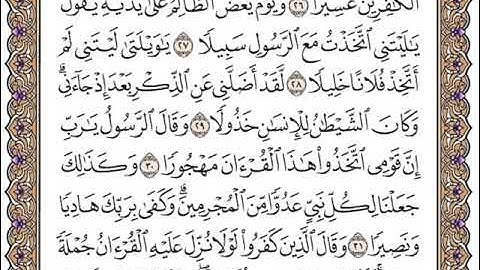 الْكَٰفِرِينَ عَسِيرًا ٢٦ وَيَوْمَ يَعَضُّ الظَّالِمُ عَلَىٰ يَدَيْهِ يَقُولُ
يَٰلَيْتَنِي اتَّخَذْتُ مَعَ الرَّسُولِ سَبِيلًا ٢٧ يَٰوَيْلَتَىٰ لَيْتَنِي لَمْ
أَتَّخِذْ فُلَانًا خَلِيلًا ٢٨ لَّقَدْ أَضَلَّنِي عَنِ الذِّكْرِ بَعْدَ إِذْ جَاءَنِي ۗ
وَكَانَ الشَّيْطَٰنُ لِلْإِنسَٰنِ خَذُولًا ٢٩ وَقَالَ الرَّسُولُ يَٰرَبِّ
إِنَّ قَوْمِي اتَّخَذُوا هَٰذَا الْقُرْءَانَ مَهْجُورًا ٣٠ وَكَذَٰلِكَ
جَعَلْنَا لِكُلِّ نَبِيٍّ عَدُوًّا مِّنَ الْمُجْرِمِينَ ۗ وَكَفَىٰ بِرَبِّكَ هَادِيًا
وَنَصِيرًا ٣١ وَقَالَ الَّذِينَ كَفَرُوا لَوْلَا نُزِّلَ عَلَيْهِ الْقُرْءَانُ جُمْلَةً